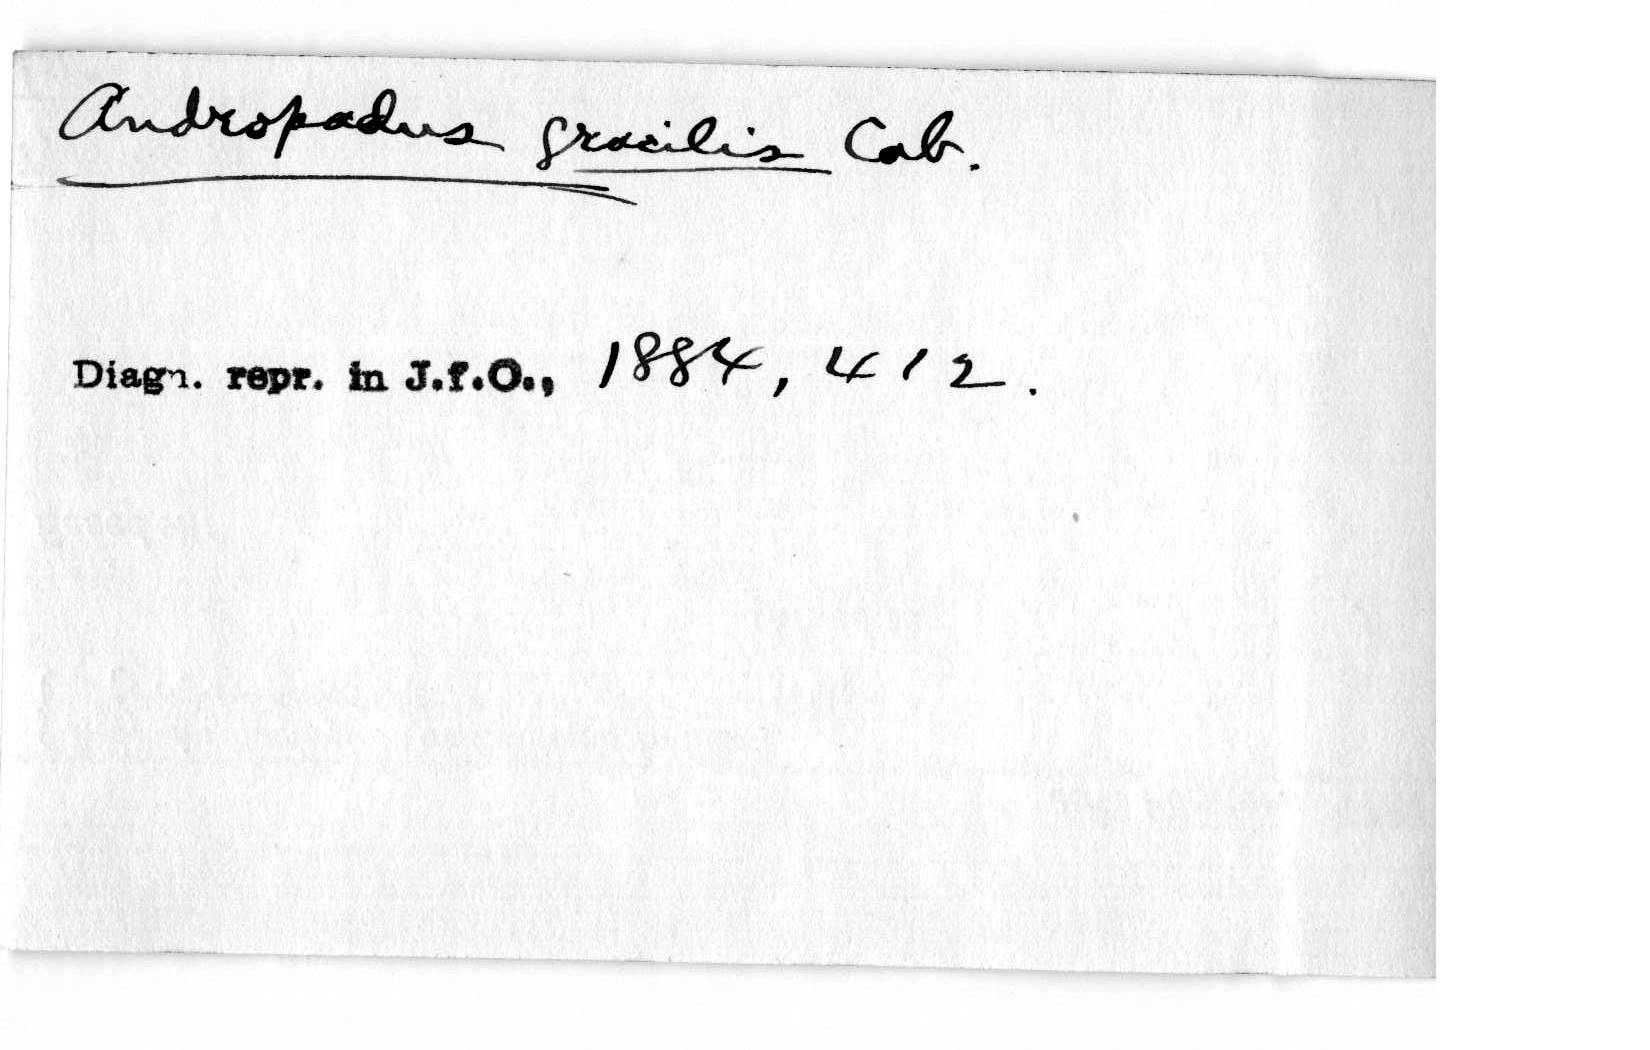 Andropadus gracilis Cab.
Diagn. repr. in J.f.O., 1884, 412.